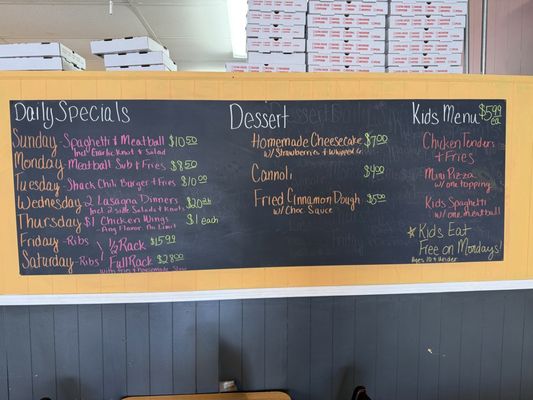 Daily Specials
Sunday - Spaghetti & Meatball $10.50
Incl Garlic Knot & Salad
Monday - Meatball Sub & Fries $8.50
Tuesday - Shack Chili Burger & Fries $10.00
Wednesday - 2 Lasagna Dinners $20
Incl. 2 side Salads & Knots
Thursday - $1 Chicken Wings $1 each
- Any Flavor. No Limit
Friday - Ribs
Saturday - Ribs
1/2 Rack $15.99
Full Rack $28.00
With Fries & Homemade Slaw
Dessert
Homemade Cheesecake $7.00
w/ Strawberries & Whipped Cr.
Cannoli $4.00
Fried Cinnamon Dough $5.00
w/ Choc Sauce
Kids Menu $5.99 ea
Chicken Tenders
& Fries
Mini Pizza
w/ one topping
Kids Spaghetti
w/ one meatball
* Kids Eat
Free on Mondays!
Ages 10 & Under